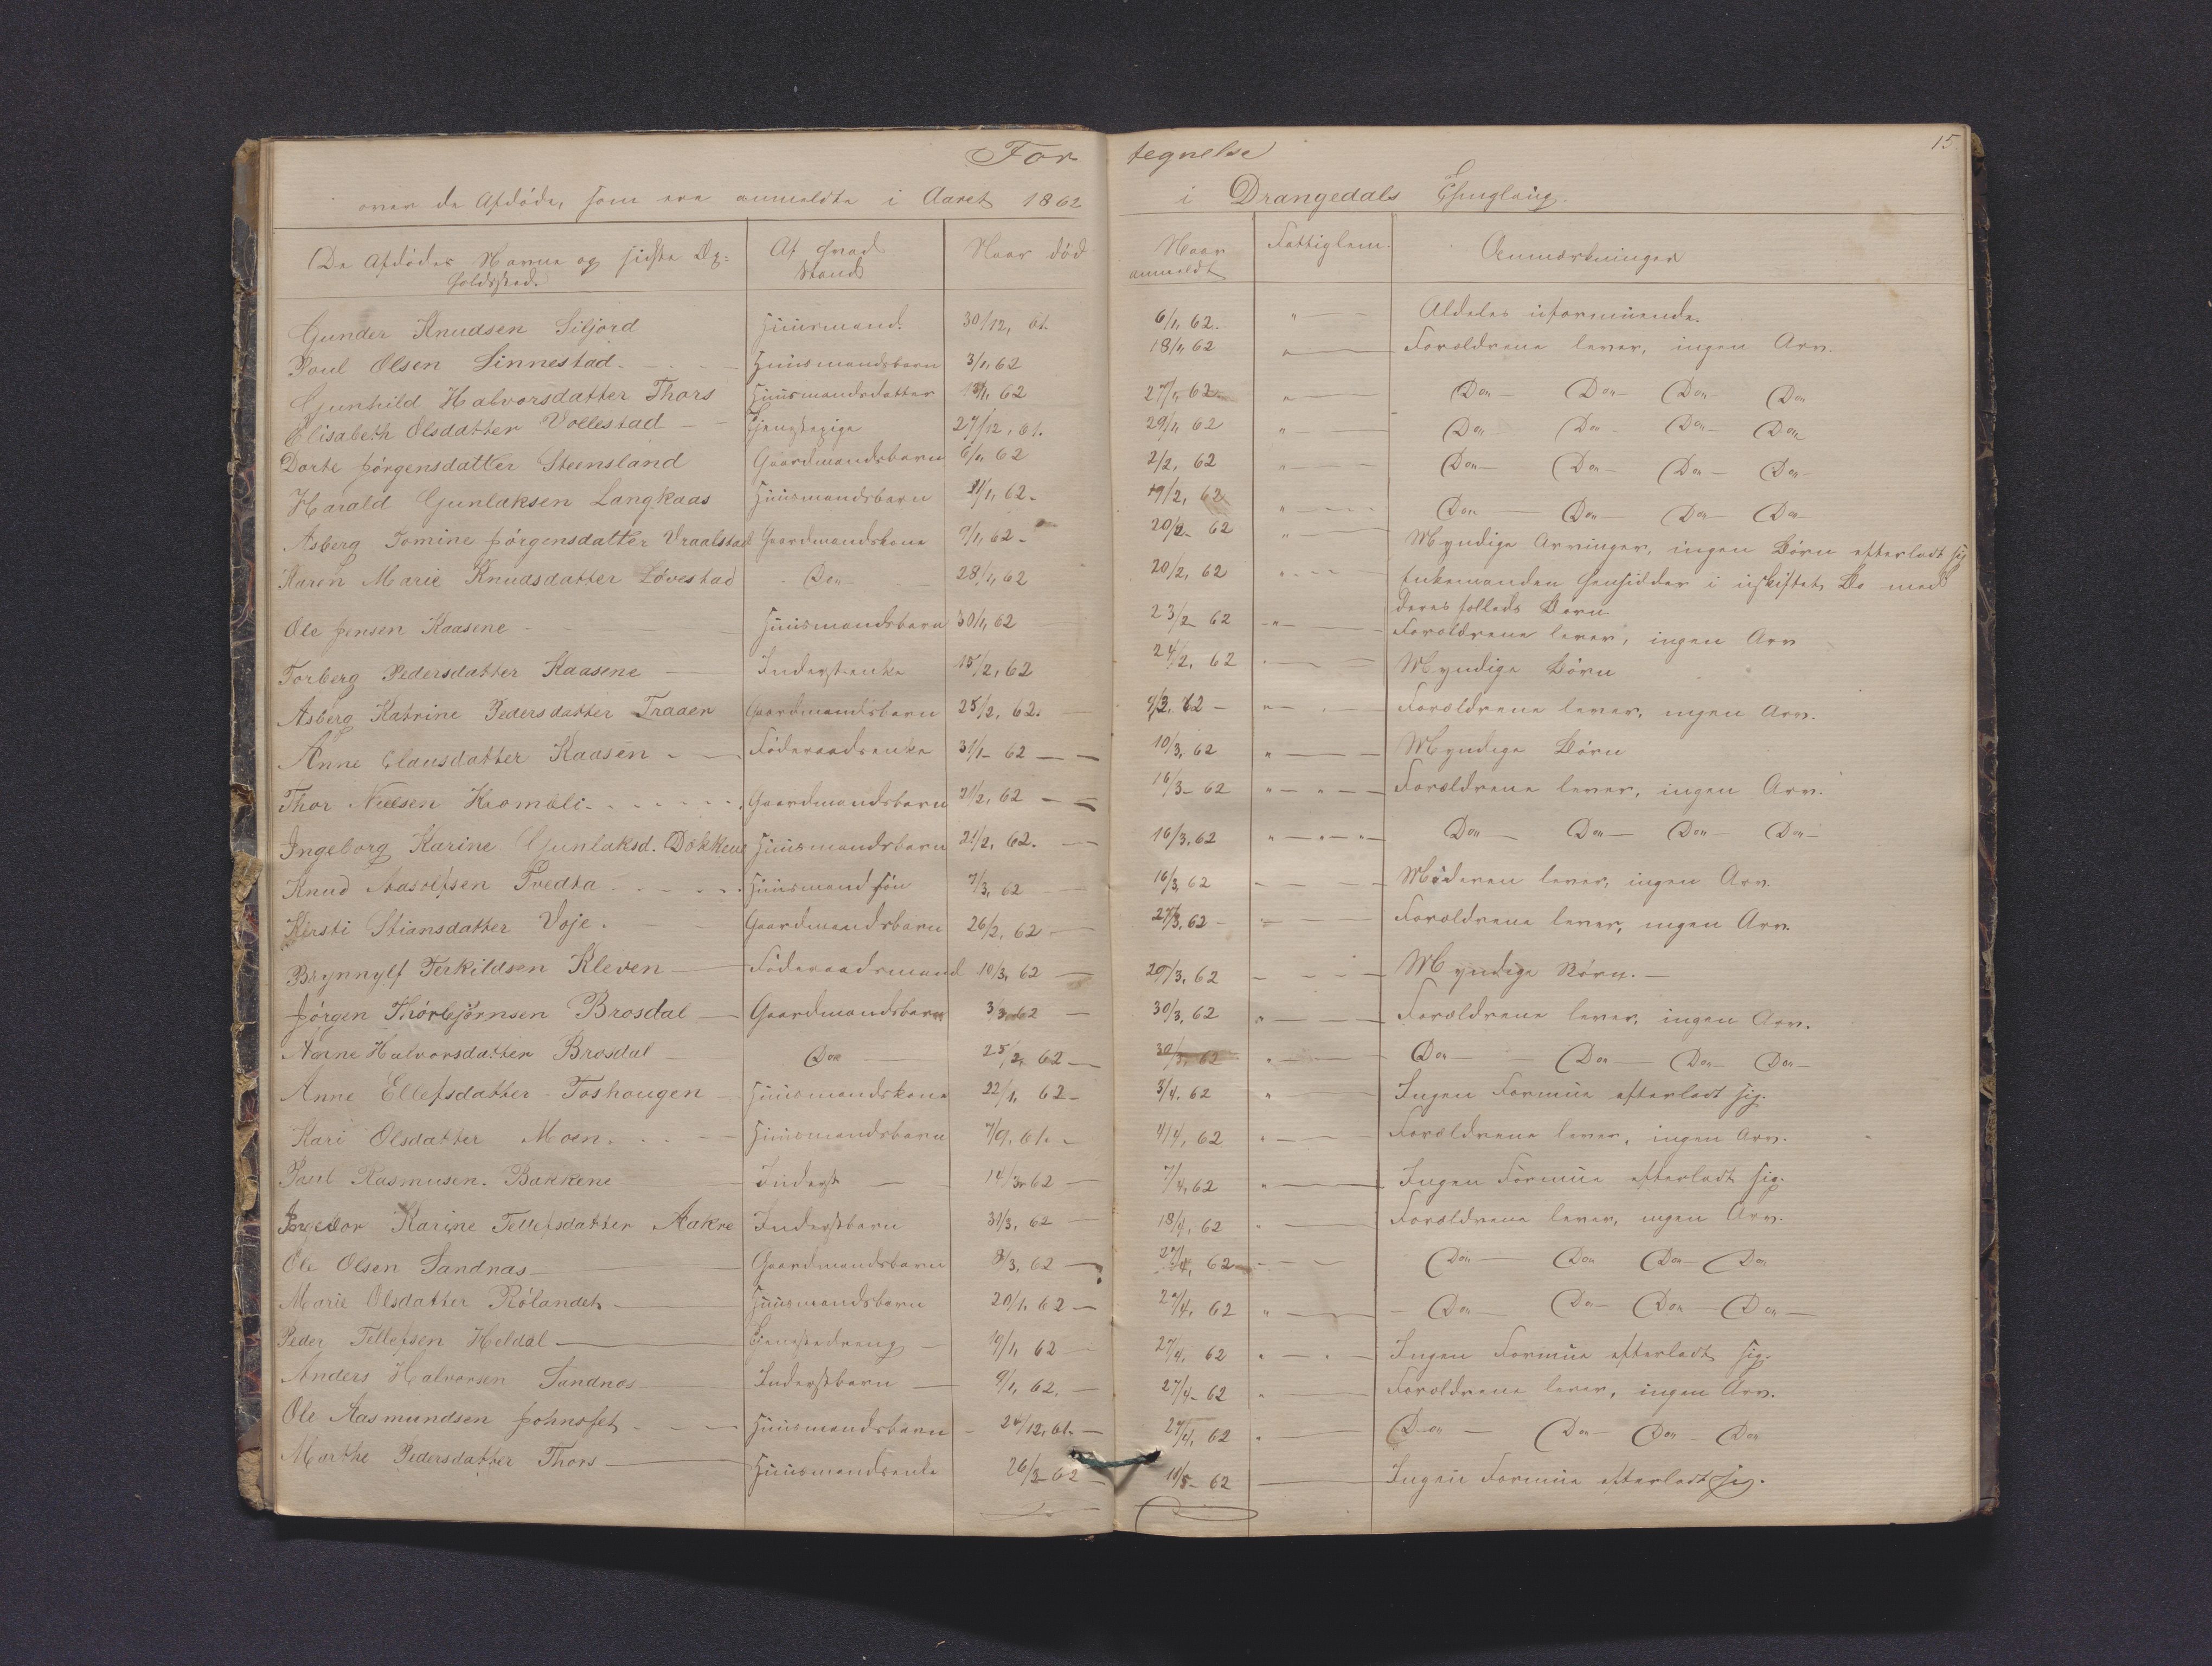 15
Fortegnelse
over de Afdöde, som ere anmeldte i Aaret 1862 i Drangedals Thinglaug.
De Afdödes Navne og sidste Op-
holdssted. Af hvad Stand Naar död Naar anmeldt Fattiglem. Anmærkninger
Gunder Knudsen Siljord Huusmand. 30/12, 61. 6/1, 62. " — Aldeles uformuende.
Poul Olsen Sinnestad. — Huusmandsbarn 3/1, 62 18/1, 62 " — Forældrene lever, ingen Arv.
Gunhild Halvorsdatter Thors Huusmandsdatter 62 27/1, 62 " — Do — Do — Do — Do
Elisabeth Olsdatter Vollestad — Tjenestepige 27/12, 61. 29/1, 62 " — Do — Do — Do — Do
Dorte Jörgensdatter Steensland Gaardmandsbarn 6/1, 62 2/2, 62 " — Do — Do — Do — Do —
Harald Gunlaksen Langkaas Huusmandsbarn 21/1, 62. 19/2, 62 " — Do — Do — Do — Do —
Asberg Tomine Jörgensdatter Vraalstad Gaardmandskone 9/1, 62 — 20/2 — 62 " — Myndige Arvinger, ingen Börn efterladt sig
Karen Marie Knudsdatter Lövestad — Do — 28/1, 62 20/2, 62 " — Enkemanden hensidder i uskiftet Bo med
deres fælleds Barn.
Ole Jensen Kaasene — Huusmandsbarn 30/1, 62 23/2 — 62 — " — Forældrene lever, ingen Arv
Torberg Pedersdatter Kaasene — Inderstenke 15/2, 62 24/2, 62 — Myndige Börn
Asberg Katrine Pedersdatter Traaen Gaardmandsbarn 25/2, 62. — 9/3, 62 — " — Forældrene lever, ingen Arv.
Anne Clausdatter Kaasen — Föderaadsenke 31/1 — 62 — 10/3, 62 " — Myndige Börn
Thor Nielsen Krombli — Gaardmandsbarn 2/2, 62 — 16/3 — 62 " — " — Forældrene lever, ingen Arv.
Ingeborg Karine Gunlaksd. Dokkene Huusmandsbarn 21/2, 62. — 16/3, 62 " — " — Do — Do — Do — Do —
Knud Aasolfsen Tvedta — Huusmandsön 7/3, 62 — 16/3, 62 — Moderen lever, ingen Arv.
Kirsti Stiansdatter Voje. — Gaardmandsbarn 26/2, 62 — 27/3, 62 — Forældrene lever, ingen Arv.
Brynnylf Terkildsen Kleven — Föderaadsmand 10/3, 62 — 29/3, 62 — Myndige Börn. —
Jörgen Thorbjörnsen Brosdal — Gaardmandsbarn 3/3, 62 — 30/3, 62 " — Forældrene lever, ingen Arv.
Anne Halvorsdatter Brosdal — Do — 25/2, 62 — 30/3, 62 " — Do — Do — Do — Do —
Anne Ellefsdatter Toshaugen — Huusmandskone 22/1, 62 — 3/4, 62 " — Ingen Formue efterladt sig.
Kari Olsdatter Moen. — Huusmandsbarn 7/9, 61. — 4/4, 62 " — Forældrene lever, ingen Arv.
Poul Rasmusen Bakkene — Inderst — 14/3, 62 — 7/4, 62 " — Ingen Formue efterladt sig.
Karine Tellefsdatter Aakre Inderstbarn 31/3, 62 — 18/4, 62 " — Forældrene lever, ingen Arv.
Ole Olsen Sandnas — Gaardmandsbarn 8/3, 62 — 27/4, 62 — Do — Do — Do — Do
Marie Olsdatter Rölandet — Huusmandsbarn 20/1, 62 — 27/4, 62 " — Do — Do — Do — Do —
Peder Tellefsen Heldal — Tjenestedreng — 19/1, 62 — 27/4, 62 " — Ingen Formue efterladt sig.
Anders Halvorsen Sandnas — Inderstbarn — 9/1, 62. — 27/4 — 62 " — Forældrene lever, ingen Arv.
Ole Aasmundsen Johnsfet — Huusmandsbarn — 24/12, 61. — 27/4, 62 " — Do — Do — Do — Do
Marthe Pedersdatter Thors — Huusmandsenke 26/3 — 62 — 11/5 — 62 — Ingen Formue efterladt sig.